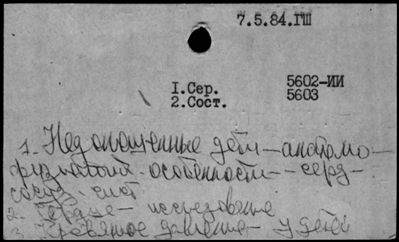 7.5.84.ГШ
1.Сер.
5602-ИИ
2.Сост.
5603
1. Недоношенные дети — анатомо —
физиолог. особенности — серд-
сосуд. сист.
2. Сердце — исследование
3. Кровяное давление — у детей